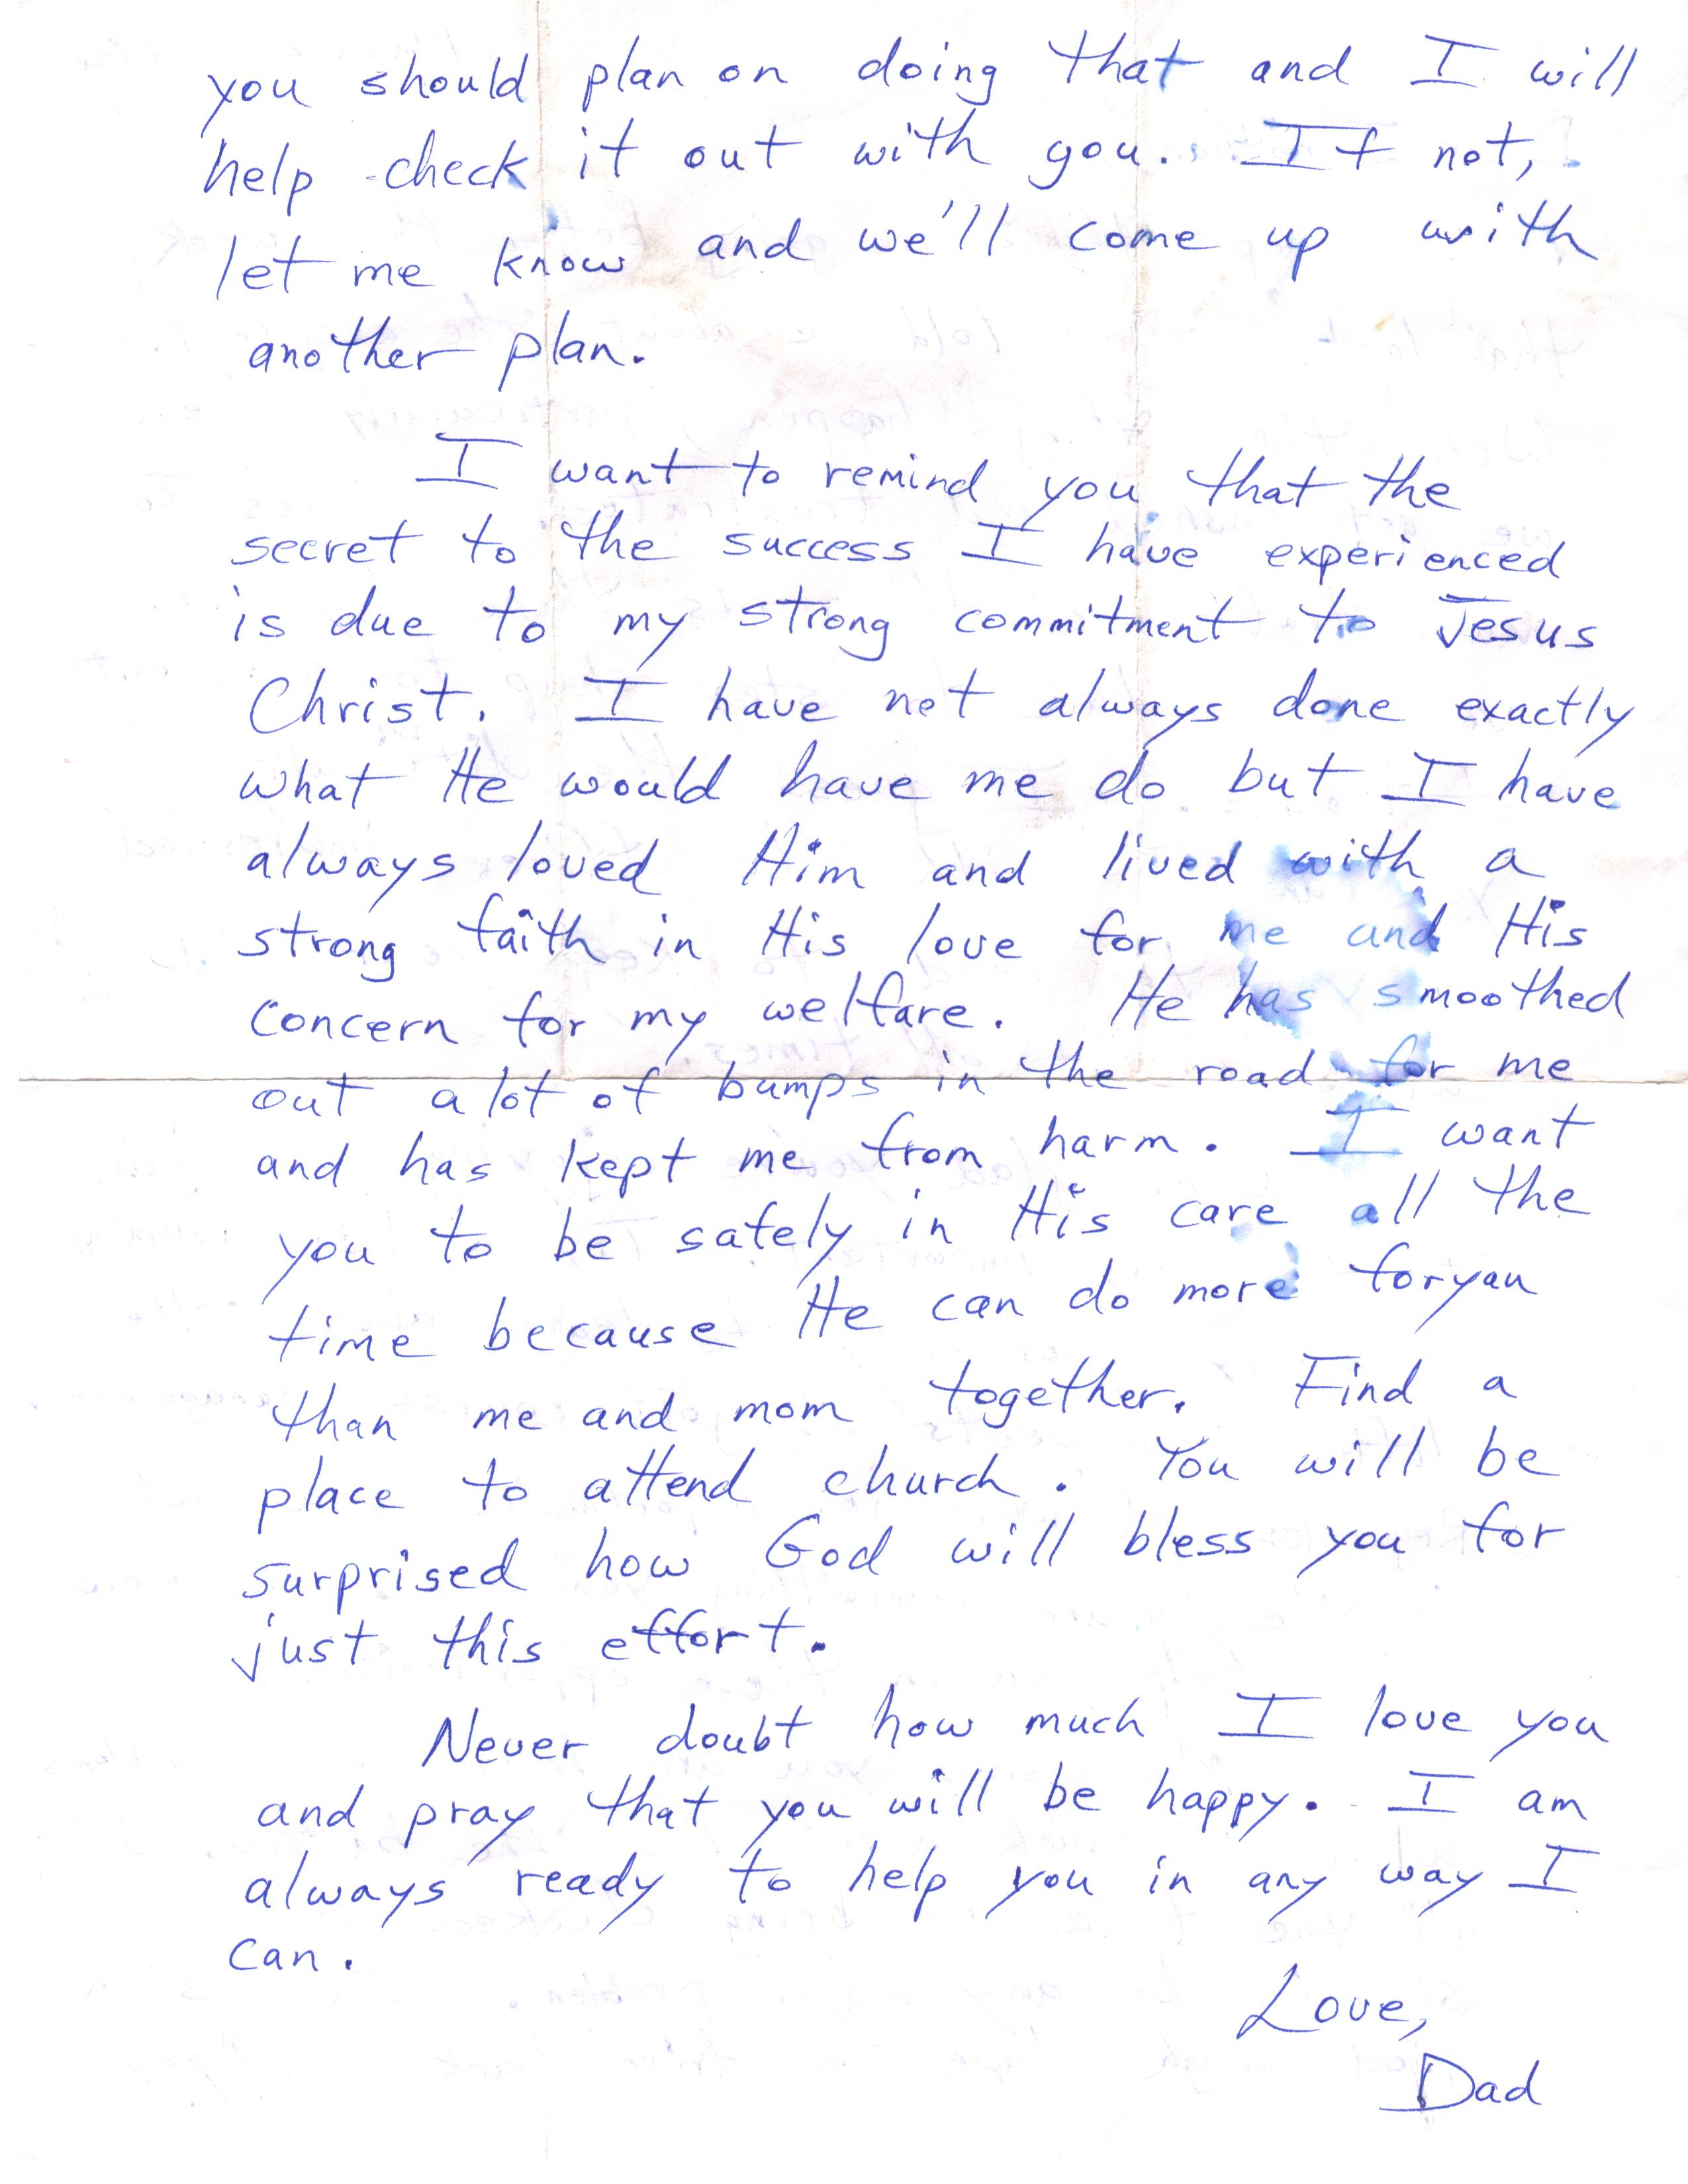 you should plan on doing that and I will
help check it out with you. If not,
let me know and we'll come up with
another plan.
I want to remind you that the
secret to the success I have experienced
is due to my strong commitment to Jesus
Christ. I have not always done exactly
what He would have me do but I have
always loved Him and lived with a
strong faith in His love for me and His
concern for my welfare. He has smoothed
out a lot of bumps in the road for me
and has kept me from harm. I want
you to be safely in His care all the
time because He can do more for you
than me and mom together. Find a
place to attend church. You will be
surprised how God will bless you for
just this effort.
Never doubt how much I love you
and pray that you will be happy. I am
always ready to help you in any way I
can.
Love,
Dad